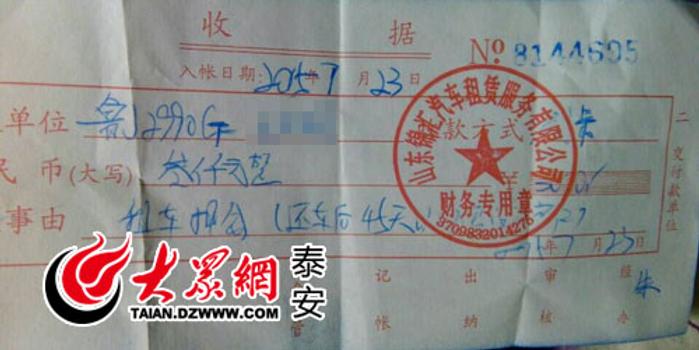 收 据
№ 8144695
入帐日期:2015年7月23日
单位 鲁J2990G 款方式 卡
民币(大写)叁仟元整
事由 租车押金(还车后45天
2015年7月23日
二 交付款单位
记帐 出纳 审核 经办
管
朱
山东锦 汽车租赁服务有限公司
财务专用章
3709832014276
大眾網 泰安
TAIAN.DZWWW.COM